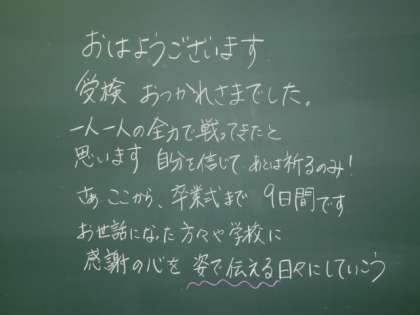 おはようございます
受検 おつかれさまでした。
一人一人の全力で戦ってきたと
思います 自分を信じて あとは祈るのみ!
さぁ ここから、卒業式まで 9日間です
お世話になった方々や学校に
感謝の心を 姿で伝える日々にしていこう